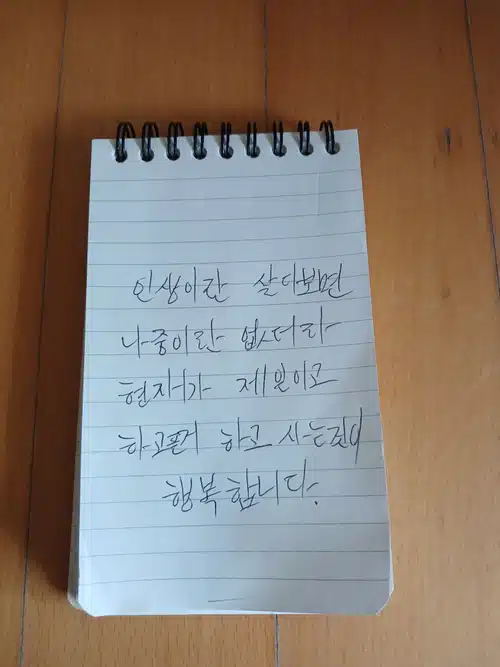 인생이란 살다보면
나중이란 없더라
현재가 제일이고
하고픈거 하고 사는것이
행복합니다.